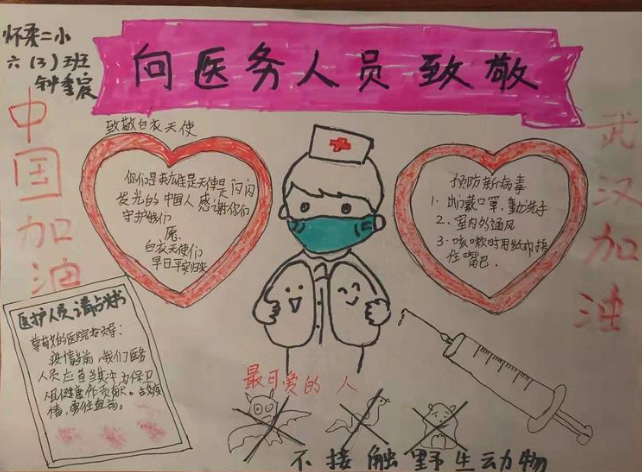 怀柔二小
六（3）班
向医务人员致敬
中国加油
武汉加油
致敬白衣天使
你们是英雄是天使是闪闪
发光的中国人感谢你们
守护我们
愿
白衣天使们
早日平安归来
预防新病毒
1、出门戴口罩，勤洗手
2、室内外通风
3、咳嗽时用纸巾捂
住嘴巴.
医护人员请战书
尊敬的医院领导：
疫情当前，我们医务
人员应当
最可爱的人
不接触野生动物